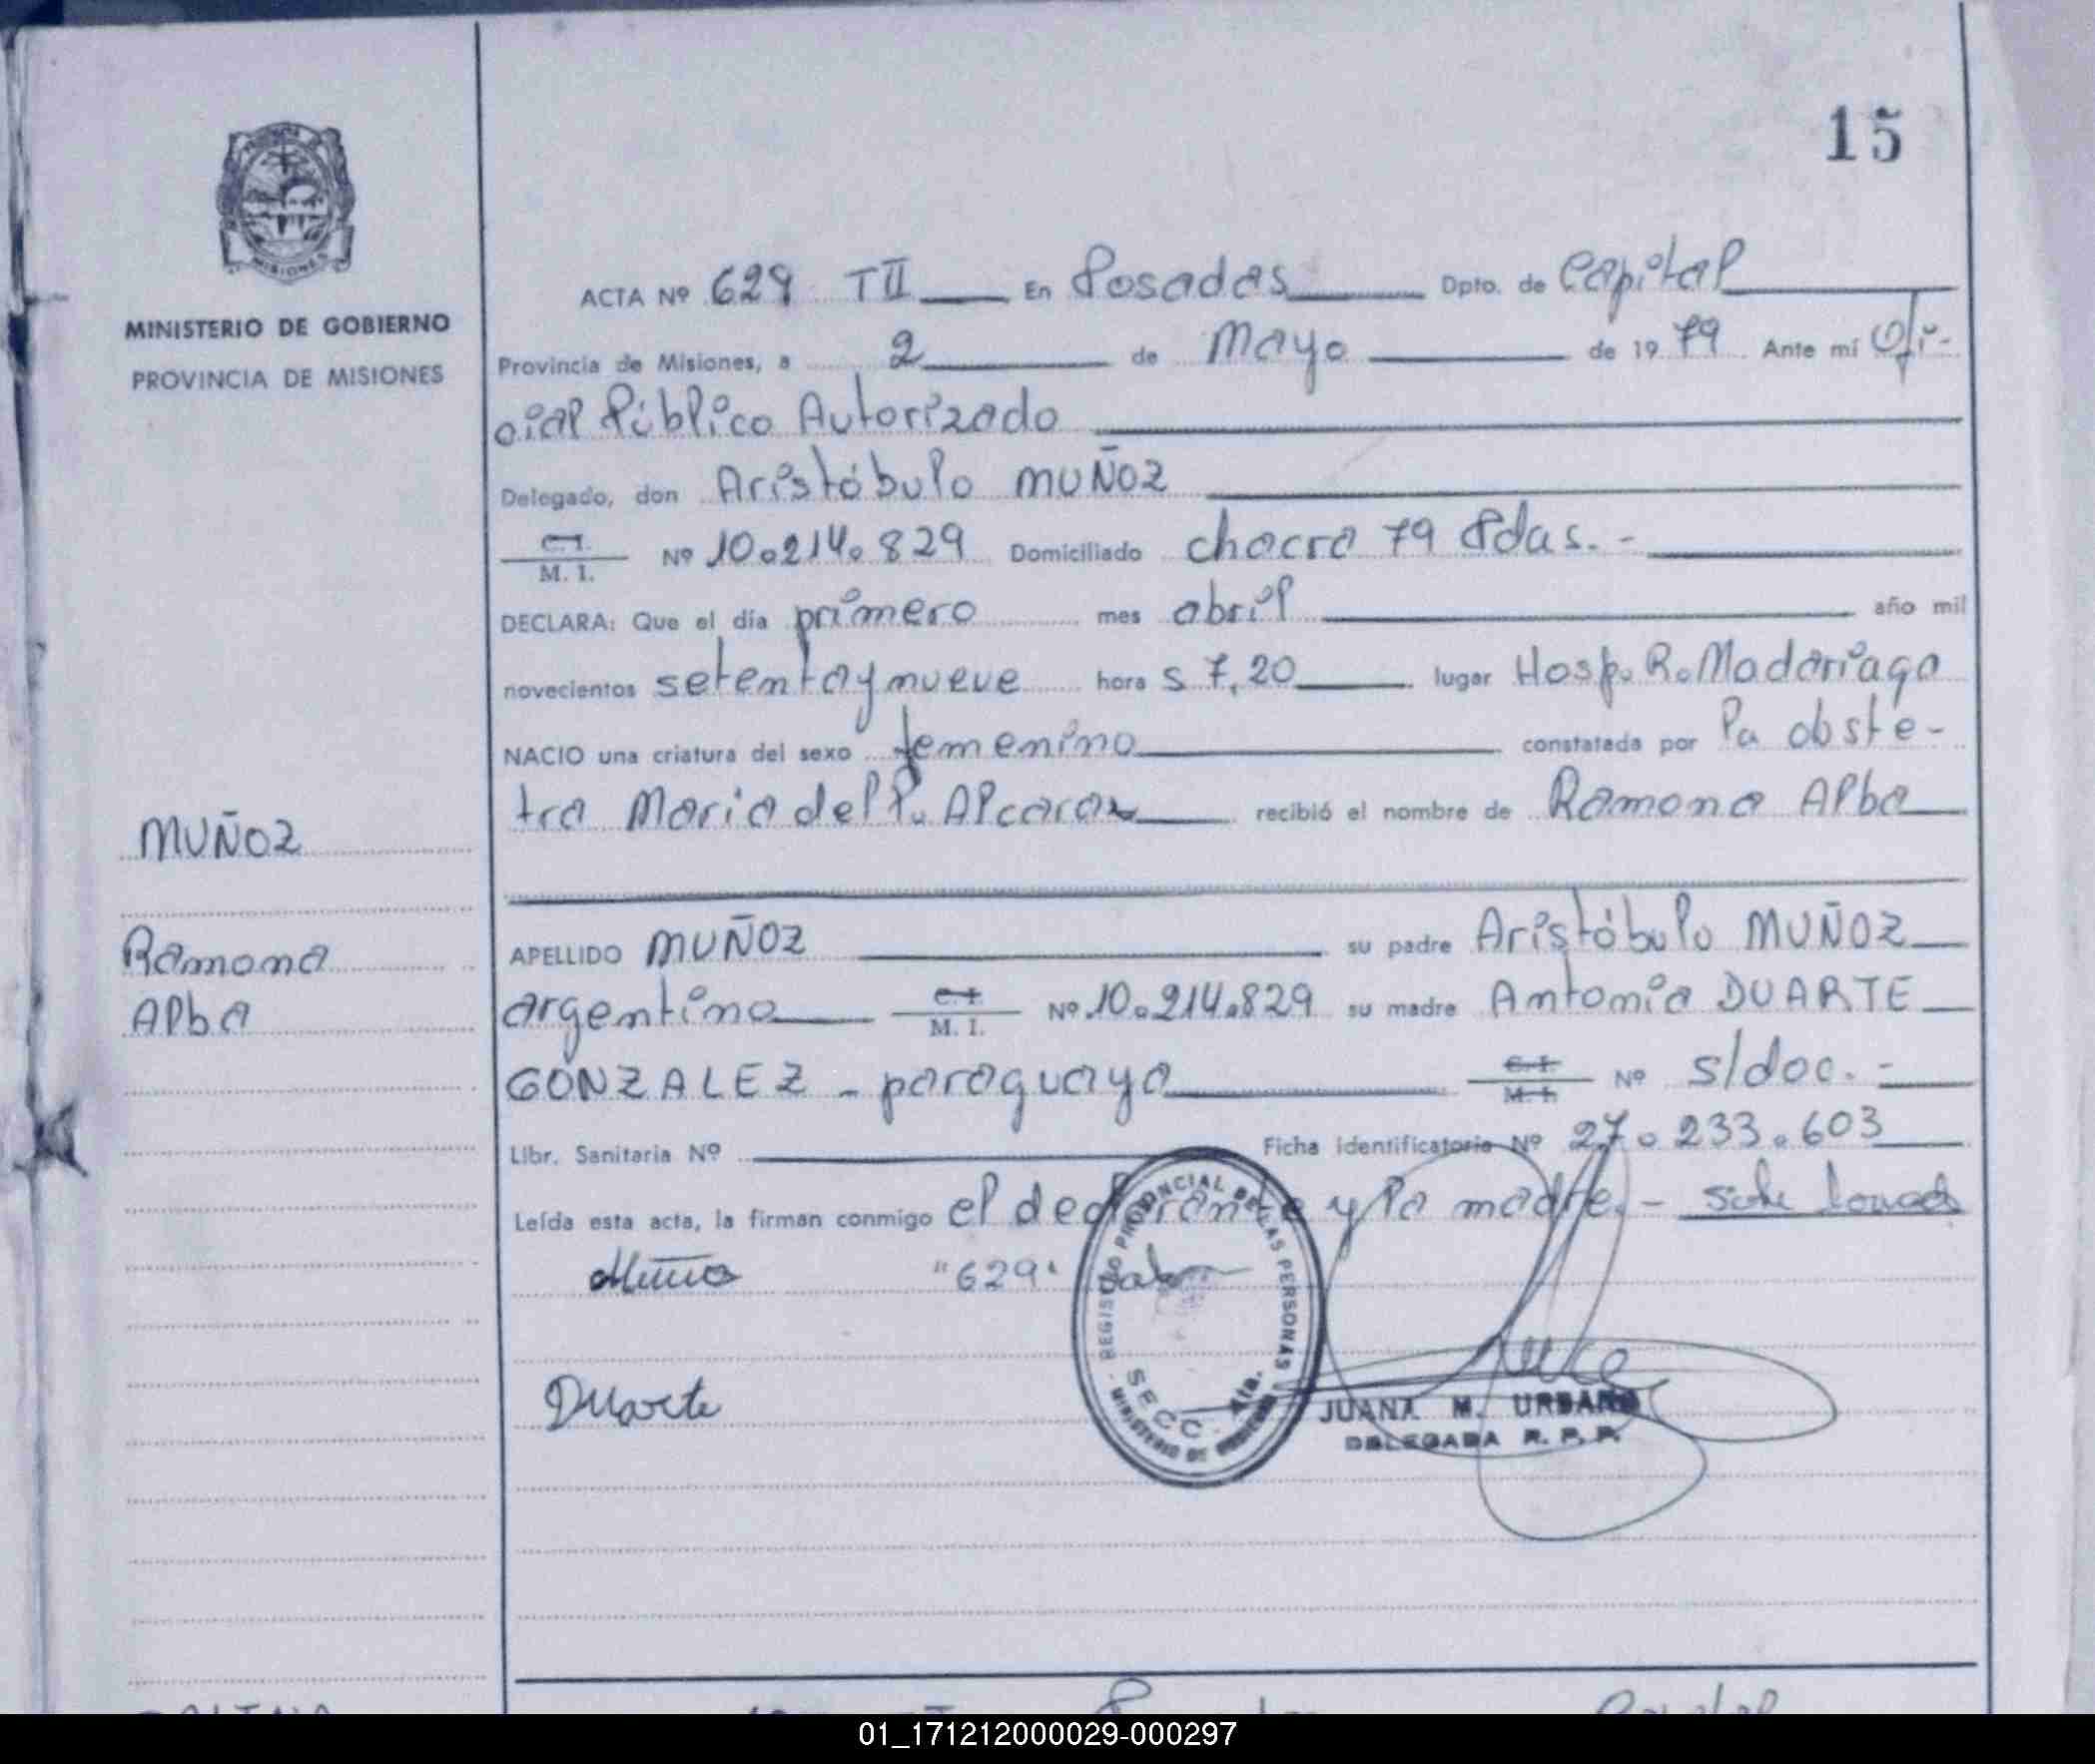 15
MINISTERIO DE GOBIERNO
PROVINCIA DE MISIONES
ACTA Nº 629 TII En Posadas Dpto. de Capital
Provincia de Misiones, a 2 de Mayo de 1979 Ante mí Ofi-
cial Público Autorizado
Delegado, don Aristóbulo MUÑOZ
C.I. M. I. Nº 10.214.829 Domiciliado chacra 79 Pdas.-
DECLARA: Que el día primero mes abril año mil
novecientos setenta y nueve hora s 7,20 lugar Hosp. R. Madariaga
NACIO una criatura del sexo femenino constatada por la obste-
tra Maria del P. Alcaraz recibió el nombre de Ramona Alba
MUÑOZ
Ramona
Alba
APELLIDO MUÑOZ su padre Aristóbulo MUÑOZ
argentino C.I. M. I. Nº 10.214.829 su madre Antonia DUARTE
GONZALEZ - paraguaya C.I. M.I. Nº s/doc.-
Libr. Sanitaria Nº Ficha identificatoria Nº 27.233.603
Leída esta acta, la firman conmigo el declarante y la madre.-
"629"
Duarte
REGISTRO PROVINCIAL DE LAS PERSONAS
SECC. 4ta.
MINISTERIO DE GOBIERNO
JUANA M. URBANO
DELEGADA R. P. P.
01_171212000029-000297